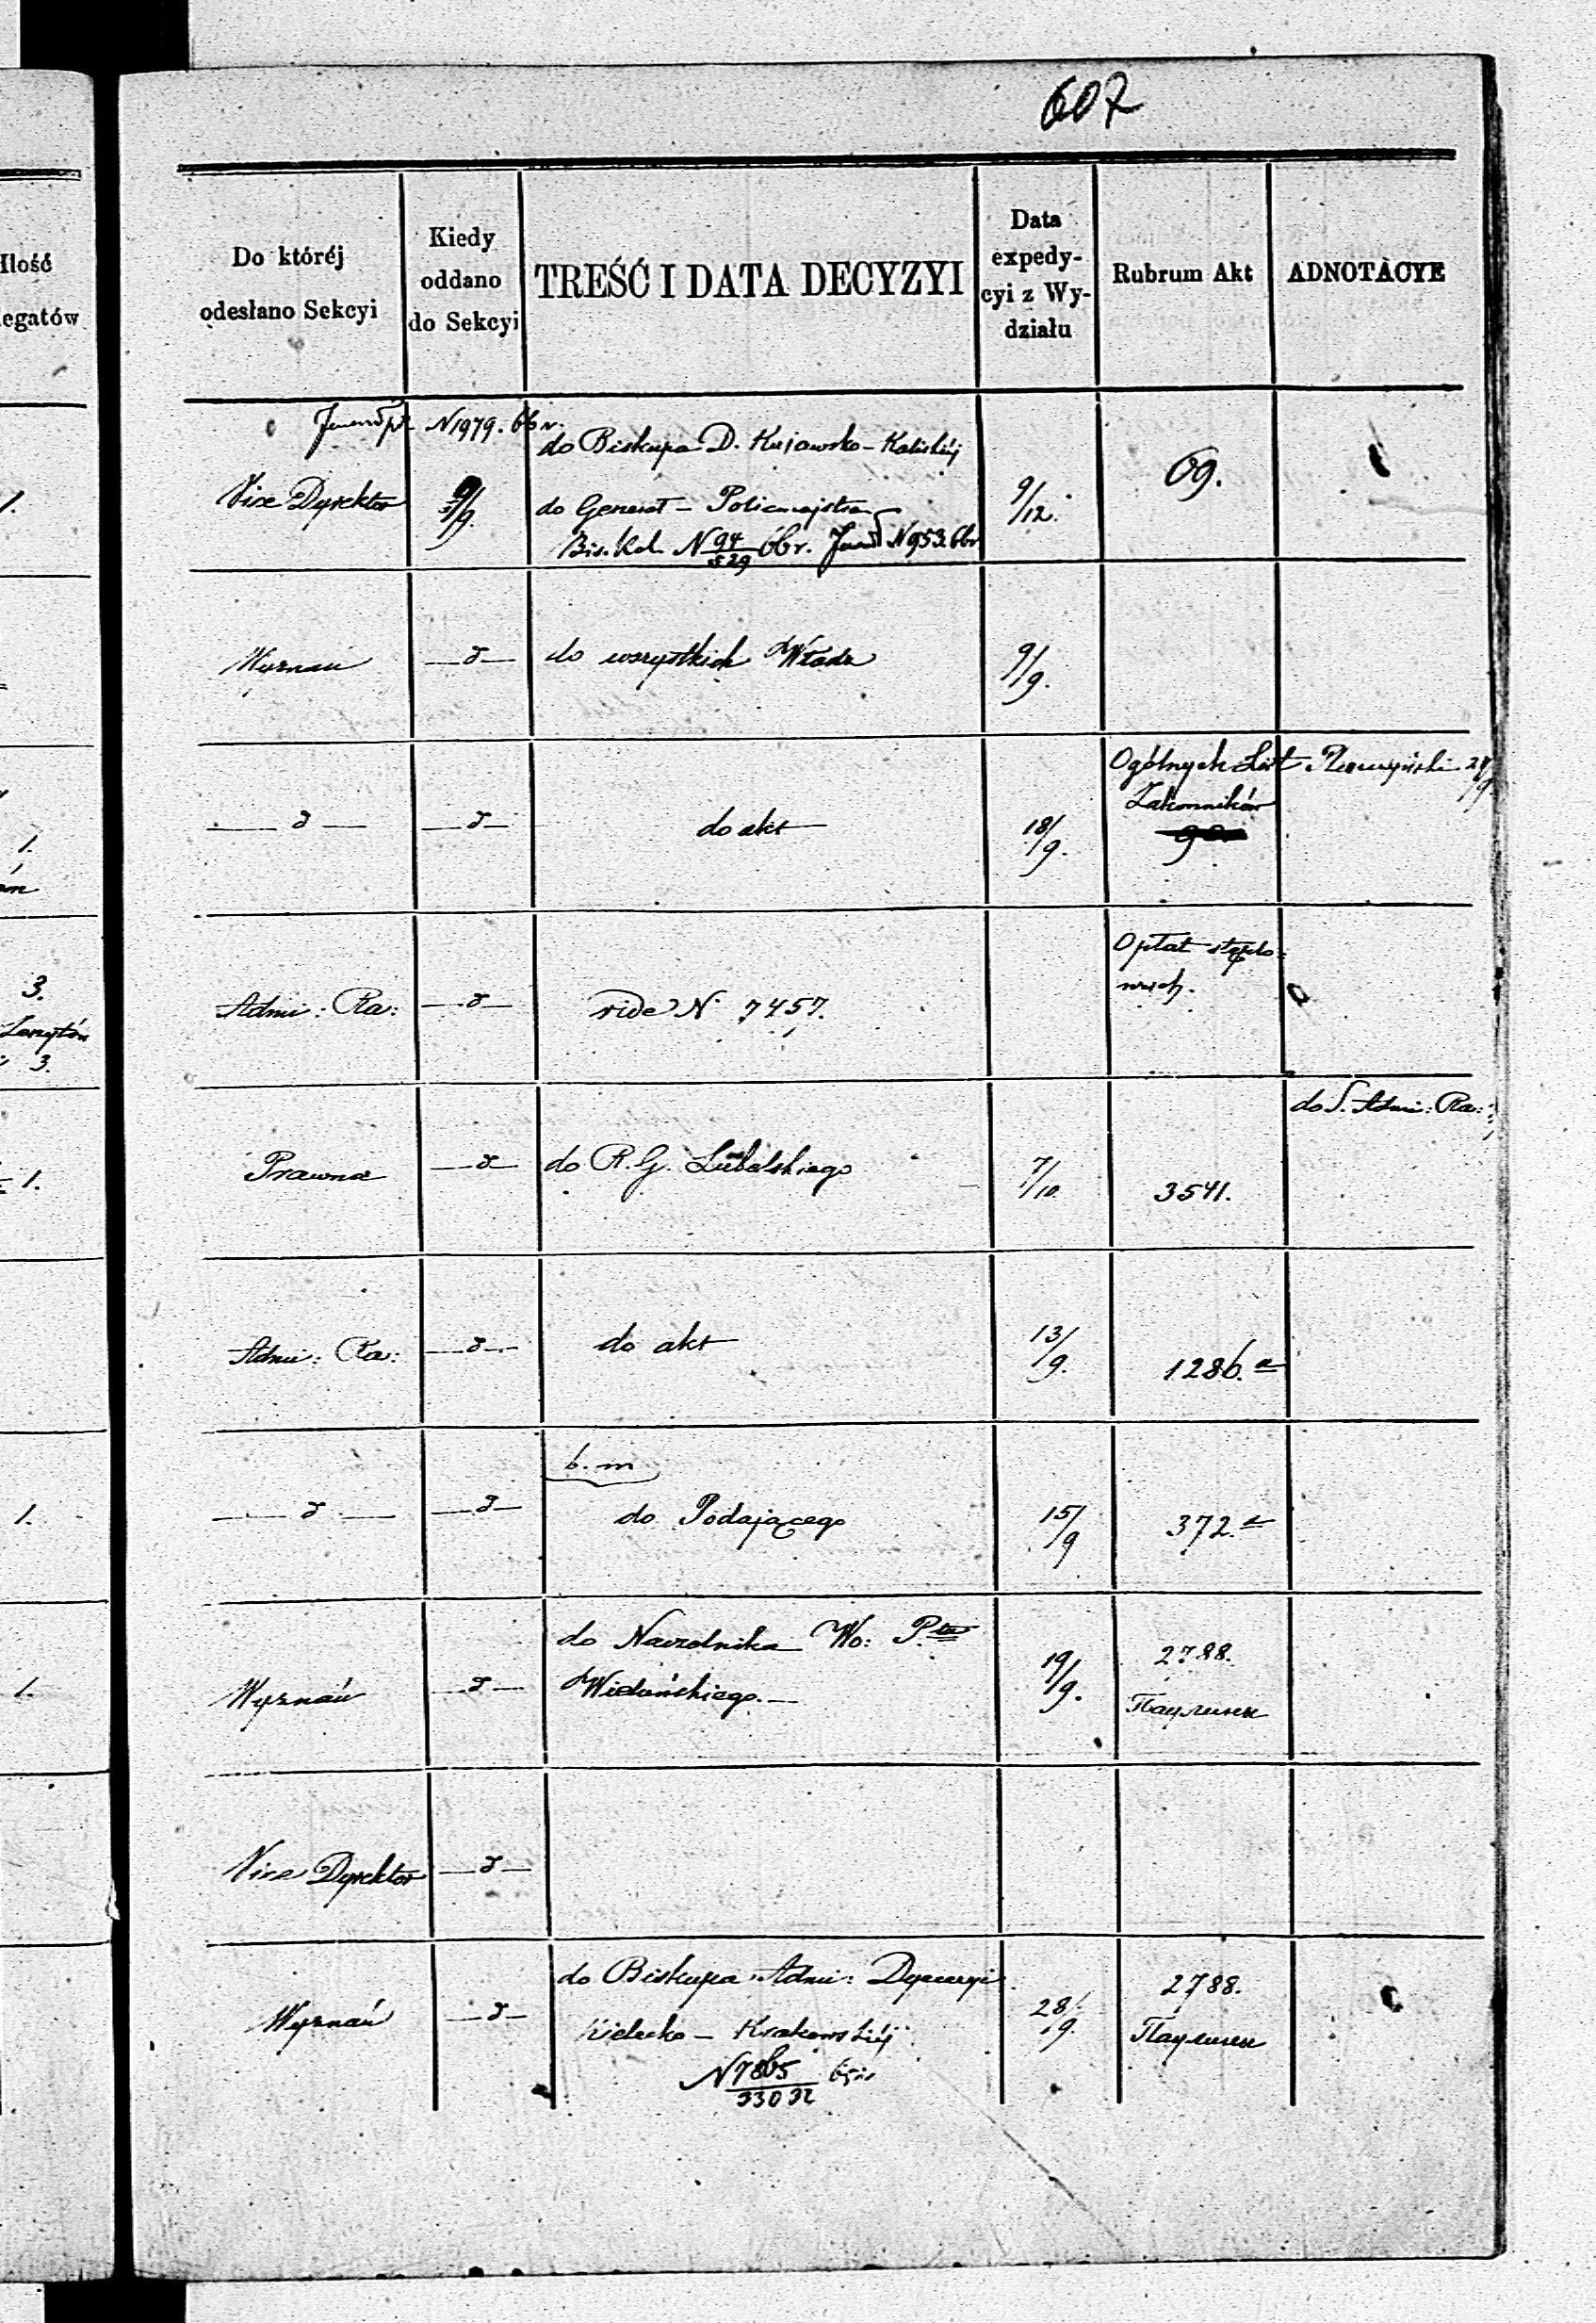 607
Ilość
legatów
Do któréj
odesłano Sekcyi
Kiedy
oddano
do Sekcyi
TREŚĆ I DATA DECYZYI
Data
expedy-
cyi z Wy-
działu
Rubrum Akt
ADNOTACYE
N 1979. 66 r.
1.
Vice Dyrektor
9/9.
do Biskupa D. Kujawsko-Kaliskiéj
do Generał-Policmajstra
N 94/529 66 r. N 953. 66 r
9/12.
69.
Wyznań
— d —
do wszystkich Władz
9/9.
1.
— d —
— d —
do akt
18/9.
Ogólnych List
Zakonników
3.
3.
Admi: Ra:
— d —
vide N. 7457.
Opłat stęplo=
wych.
1.
Prawna
— d —
do R. G. Lubelskiego
7/10
3541.
do S. Admi: Ra:
Admi: Ra:
— d —
do akt
13/9.
1286. a
1.
— d —
— d —
b. m
do Podającego
15/9
372. a
1.
Wyznań
— d —
do Naczelnika Wo: Ptu
Wieluńskiego. —
19/9.
2788.
Паулины
Vice Dyrektor
— d —
Wyznań
— d —
do Biskupa Admi: Dyecezyi
Kielecko-Krakowskiéj
N 7865/33032 65 r.
28/9.
2788.
Паулины